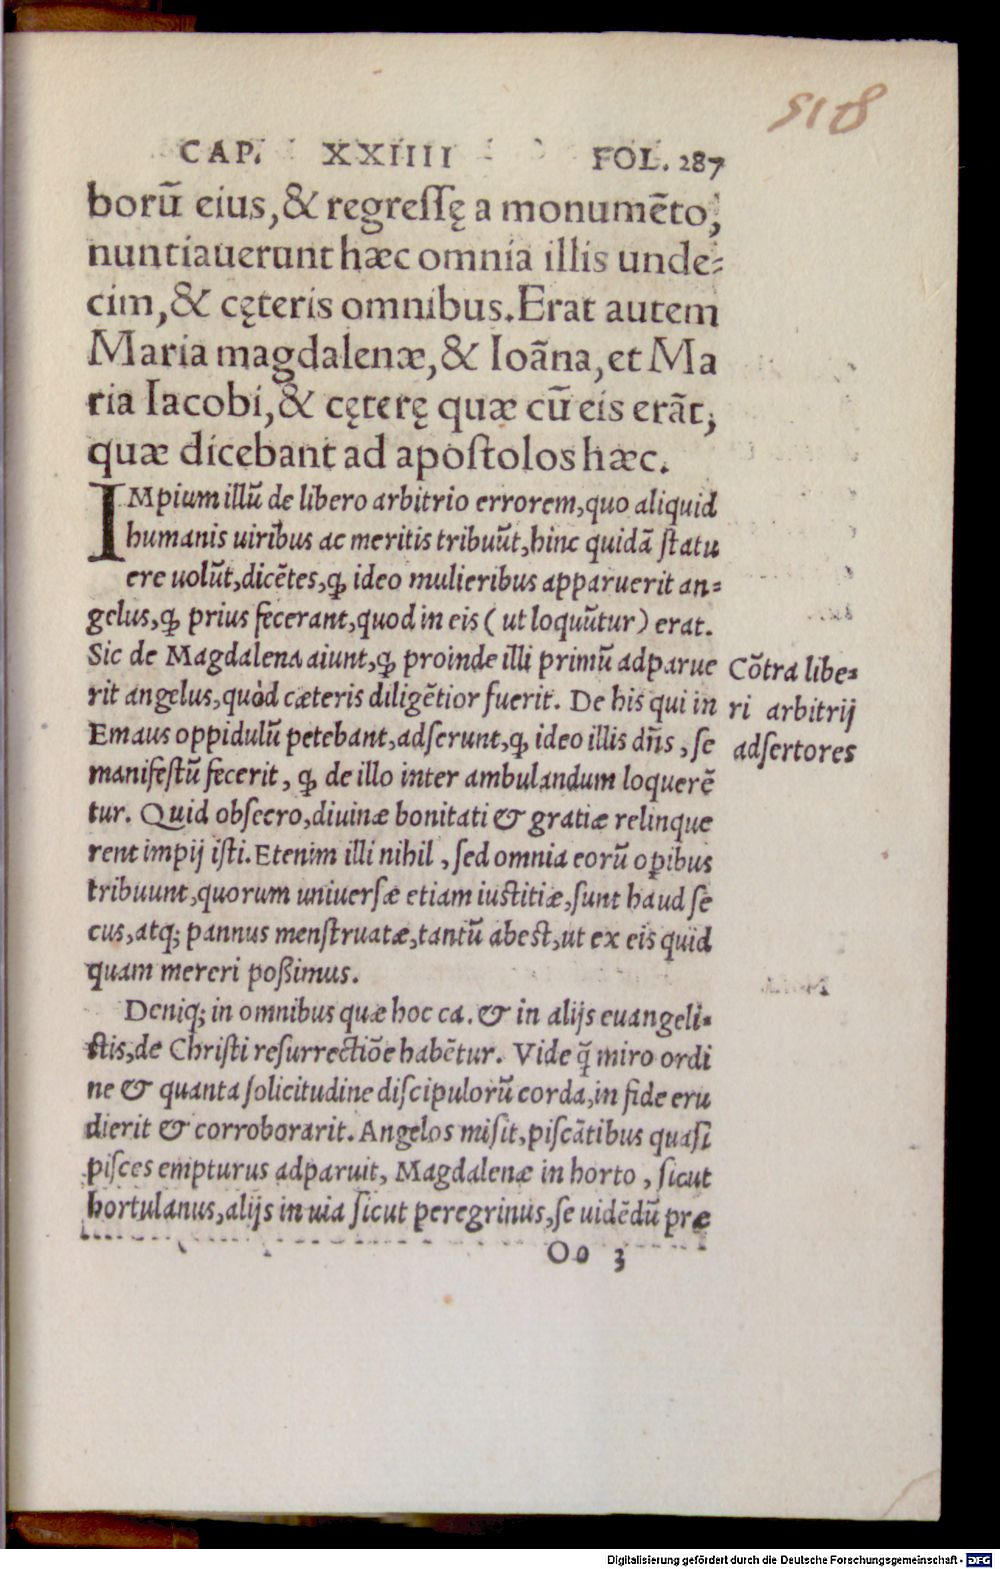 518
CAP. XXIIII FOL. 287
borū eius,& regreſſę a monumēto,
nuntiauerunt hæc omnia illis unde-
cim,& cęteris omnibus.Erat autem
Maria magdalenæ,& Ioāna,et Ma
ria Iacobi,& cęterę quæ cū eis erāt,
quæ dicebant ad apoſtolos hæc.
IMpium illū de libero arbitrio errorem,quo aliquid
humanis uiribus ac meritis tribuūt,hinc quidā ſtatu
ere uolūt,dicētes,ꝙ ideo mulieribus apparuerit an-
gelus,ꝙ prius fecerant,quod in eis ( ut loquūtur ) erat.
Sic de Magdalena aiunt,ꝙ proinde illi primū adparue
rit angelus,quòd cæteris diligētior fuerit. De his qui in
Emaus oppidulū petebant,adſerunt,ꝙ ideo illis dn̄s , ſe
manifeſtū fecerit , ꝙ de illo inter ambulandum loquerē
tur. Quid obſecro,diuinæ bonitati & gratiæ relinque
rent impij iſti.Etenim illi nihil , ſed omnia eorū oꝑibus
tribuunt,quorum uniuerſæ etiam iuſtitiæ,ſunt haud ſe
cus,atq; pannus menſtruatæ,tantū abeſt,ut ex eis quid
quam mereri poßimus.
Deniq; in omnibus quæ hoc ca. & in alijs euangeli-
ſtis,de Chriſti reſurrectiōe habētur. Vide q̄ miro ordi
ne & quanta ſolicitudine diſcipulorū corda,in fide eru
dierit & corroborarit. Angelos miſit,piſcātibus quaſi
piſces empturus adparuit, Magdalenæ in horto , ſicut
hortulanus,alijs in uia ſicut peregrinus,ſe uidēdū præ
Oo 3
Cōtra libe-
ri arbitrij
adſertores
Digitalisierung gefördert durch die Deutsche Forschungsgemeinschaft - DFG